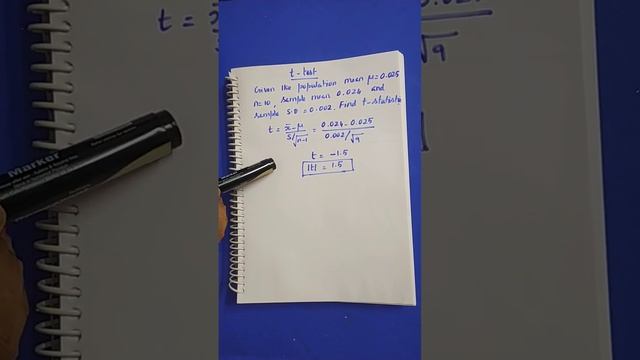 t-test
Given the population mean μ=0.025
n=10, sample mean 0.024 and
sample S.D=0.002. Find t-statistic
t = x̄-μ / S/√n-1 = 0.024-0.025 / 0.002/√9
t = -1.5
|t| = 1.5
Marker
t =
√9